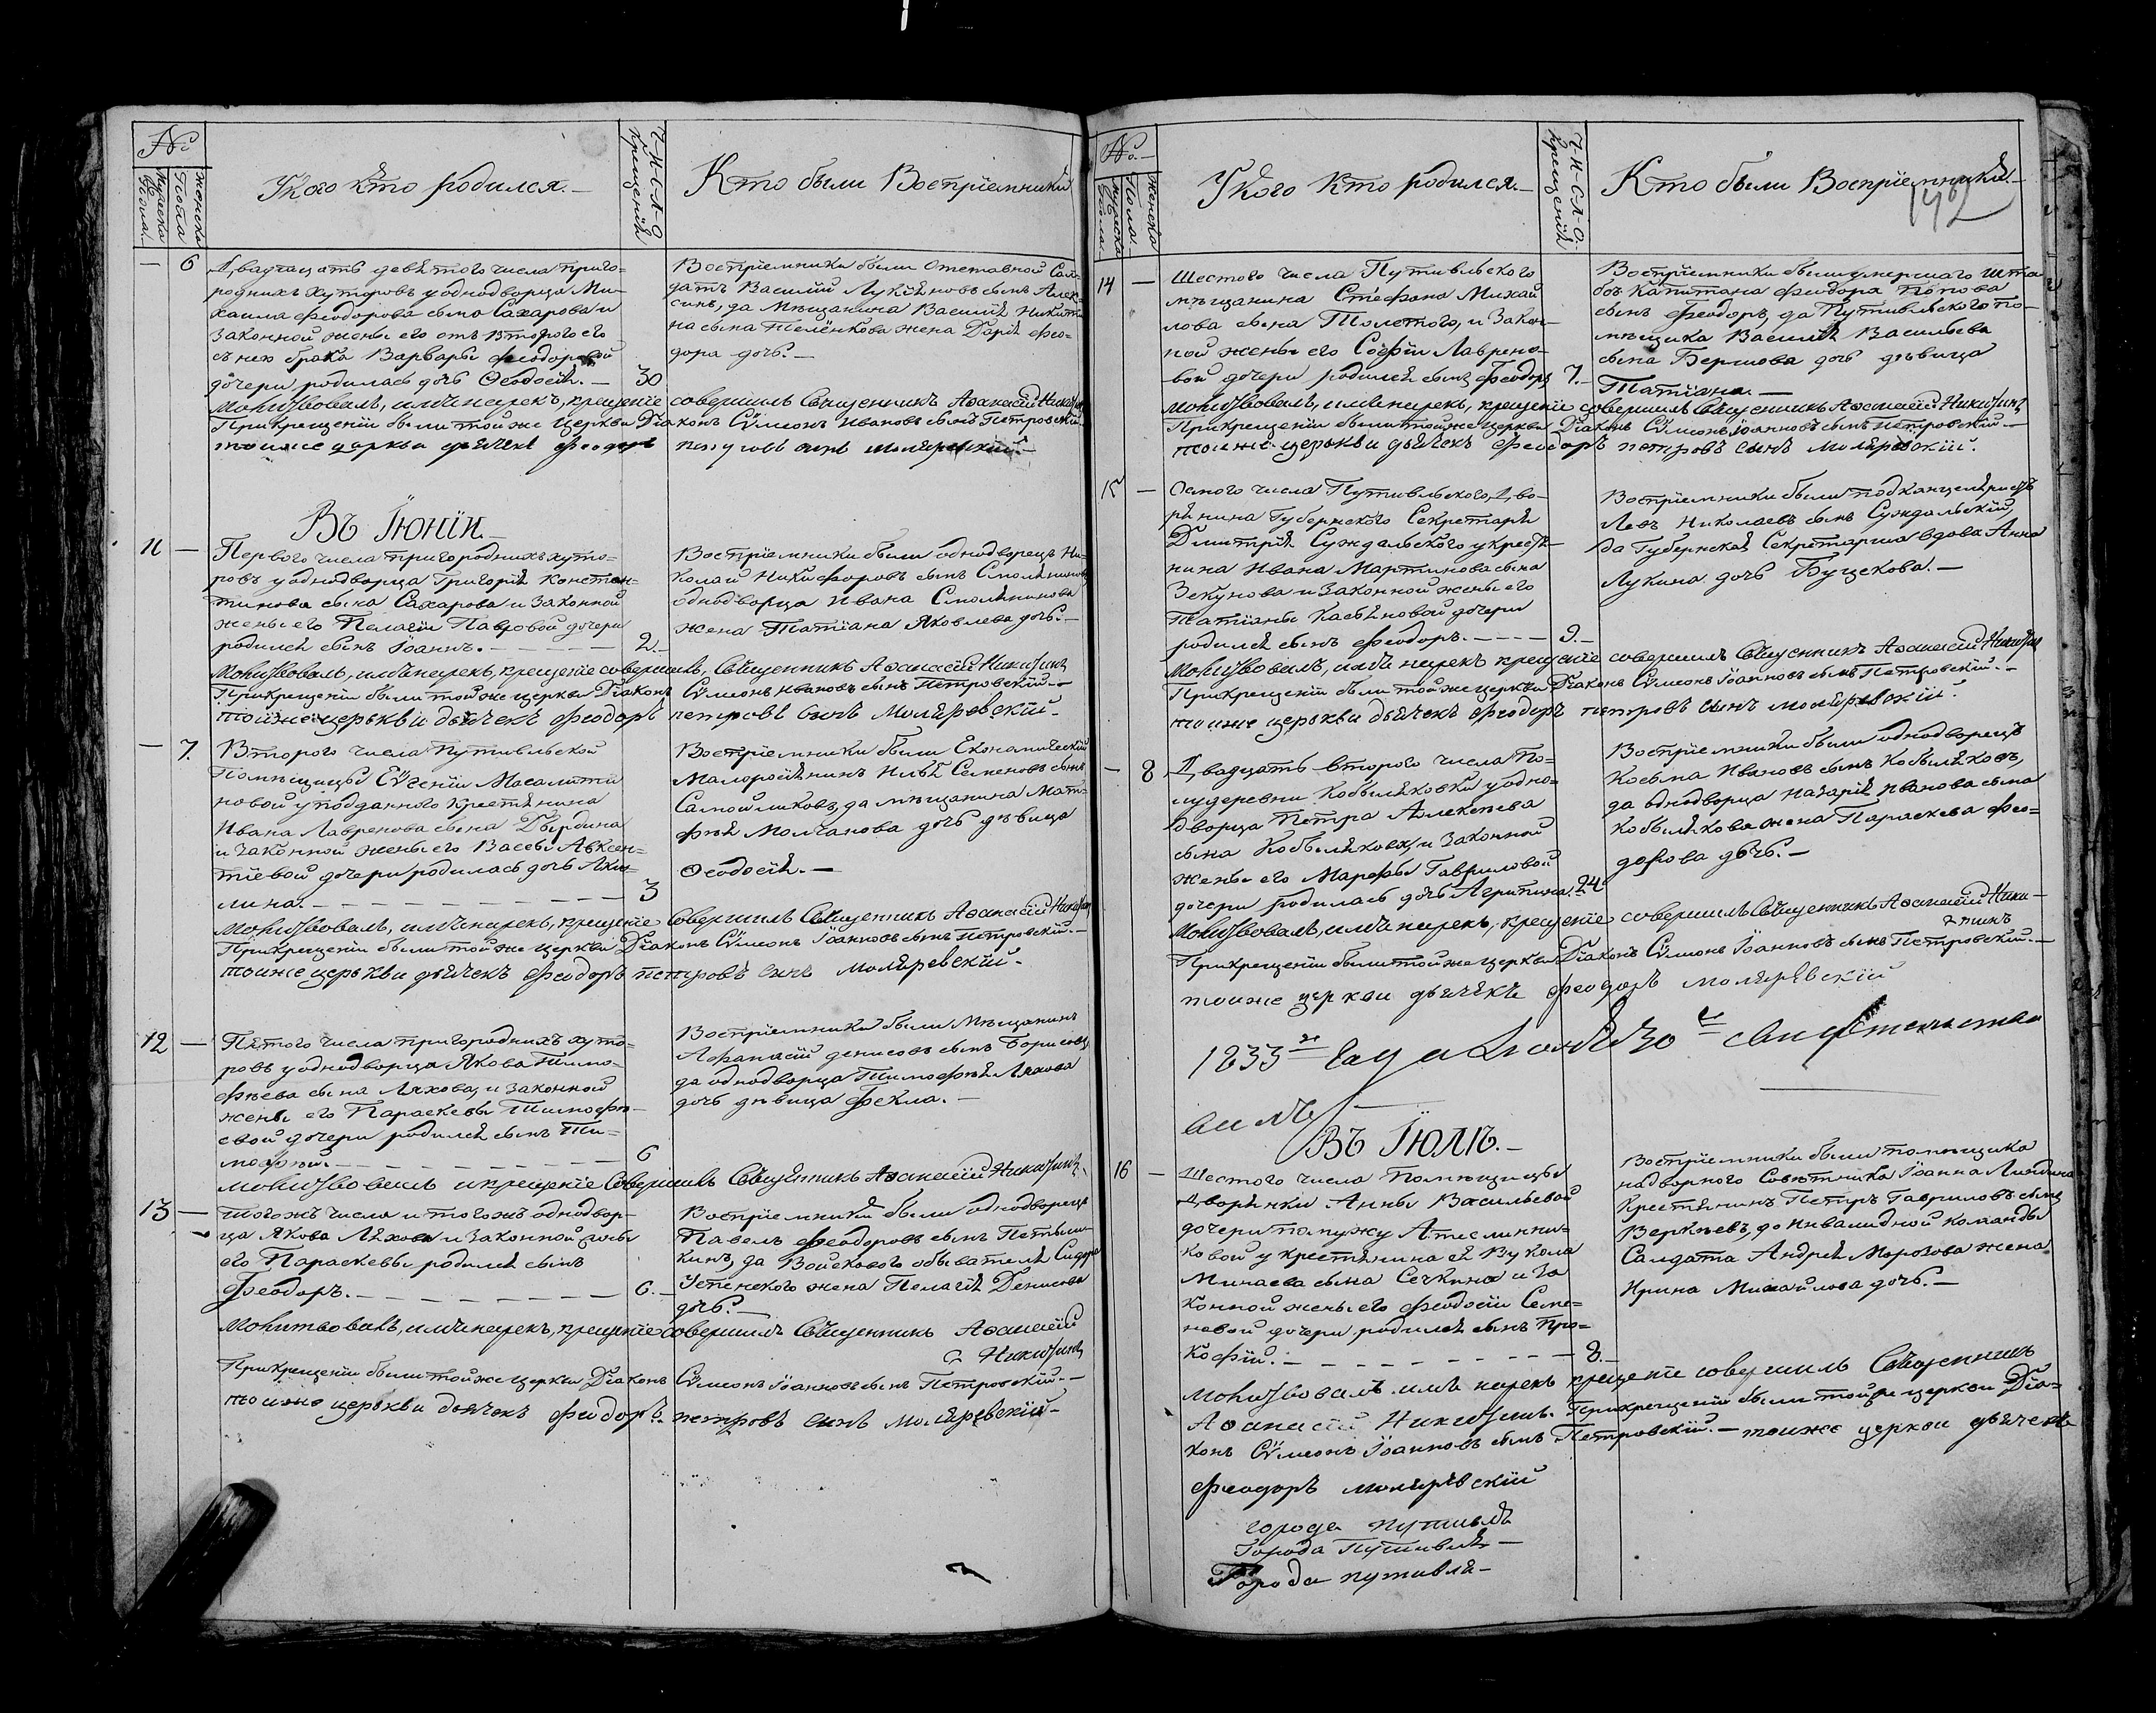 №
Мужеска Пола
Женска Пола
У кого кто родился.—
ЧИСЛО крещенiй
Кто были Восприемники
— 6
Двадцать девятого числа приго-
роднихъ хуторовъ у однодворца Ми-
хаила Феодорова сына Сахарова и
законной жены его отъ второго его
съ нею брака Варвары Феодоровой
дочери родилась дочь Ѳеодосiя.— 30
Восприемники были отставной Сол-
датъ Василiй Лукiяновъ сынъ Алек-
синъ, да мѣщанина Василiя Никити-
на сына Пеленкова жена Дарiя Фео-
дора дочь.—
Молитвовалъ, имя нарекъ, крещенiе совершилъ Священникъ Аѳанасiй Никитинъ
При крещенiи были той же церкви Дiаконъ Сѵмеонъ Ивановъ сынъ Петровскiй.
тоиже церкви дьячекъ Феодоръ петровъ сынъ моляревскiй.—
Въ Iюнiи.—
11 —
Первого числа пригороднихъ хуто-
ровъ у однодворца Григорiя Констан-
тинова сына Сахарова и законной
жены его Пелагiи Павровой дочери
родился сынъ Iоаннъ.— 2.—
Восприемники были однодворецъ Ни-
колай Никифоровъ сынъ Смоляниновъ
однодворца Ивана Смолянинова
жена Татiана Яковлева дочь.—
Молитвовалъ, имя нарекъ, крещенiе совершилъ, Священникъ Аѳанасiй Никитинъ
При крещенiи были той же церкви Дiаконъ Сѵмеонъ Ивановъ сынъ Петровскiй.—
тоиже церькви дьячекъ Феодоръ петровъ сынъ Моляревскiй.
— 7.
Второго числа Путивльской
Помѣщицы Еѵгенiи Масалити-
новой у подданного крестянина
Ивана Лавренова сына Твердина
и законной жены его Вассы Авксен-
тiевой дочери родилась дочь Аки-
лина.— 3
Восприемники были Економическiй
Малоросiянинъ Илья Семеновъ сынъ
Самошликовъ, да мѣщанина Мат-
фея Молчанова дочь дѣвица
Ѳеодосiя.—
Молитвовалъ, имя нарекъ, крещенiе совершилъ Священникъ Аѳанасiй Никитинъ
При крещенiи были той же церкви Дiаконъ Сѵмеонъ Iоанновъ сынъ Петровскiй.—
тоиже церькви дьячекъ Феодоръ петровъ сынъ моляревскiй.
12 —
Пятого числа пригороднихъ хуто-
ровъ у однодворца Якова Тимо-
фѣева сына Ляхова, и законной
жены его Параскевы Тимофѣ-
евой дочери родился сынъ Ти-
мофей.— 6
Восприемники были Мѣщанинъ
Афанасiй Денисовъ сынъ Борисовъ
да однодворца Тимофѣя Ляхова
дочь дѣвица Фекла.—
Молитвовалъ и крещенiе совершилъ Священникъ Аѳанасiй Никитинъ.
13 —
Того жъ числа и того жъ однодвор-
ца Якова Ляхова и законной жены
его Параскевы родился сынъ
Феодоръ.— 6.—
Восприемники были однодворецъ
Павелъ Феодоровъ сынъ Петыши-
кинъ, да Войскового обывателя Сидора
Успенского жена Пелагiя Денисова
дочь.—
Молитвовалъ, имя нарекъ, крещенiе совершилъ Священникъ Аѳанасiй
Никитинъ
При крещенiи были той же церкви Дiаконъ Сѵмеонъ Iоанновъ сынъ Петровскiй.—
тоиже церькви дьячекъ Феодоръ петровъ сынъ моляревскiй
№.—
Мужеска Пола.
Женска Пола.
У кого кто родился.—
ЧИСЛО. крещенiй
Кто были Восприемники.—
14 —
Шестого числа Путивльского
мѣщанина Стефана Михай
лова сына Толстого, и закон-
ной жены его Софiи Лаврено-
вой дочери родился сынъ Феодоръ 7.—
Восприемники были умершаго шта
бсъ капитана Феодора Попова
сынъ Феодоръ, да Путивльского по-
мѣщика Василiя Васильева
сына Бершова дочь дѣвица
Татiана.—
Молитвовалъ, имя нарекъ, крещенiе совершилъ Священникъ Аѳанасiй Никитинъ
При крещенiи были той же церкви Дiаконъ Сѵмеонъ Iоанновъ сынъ Петровскiй.—
тоиже церькви дьячекъ Феодоръ петровъ сынъ моляревскiй.
15 —
Осмого числа Путивльского Дво-
рянина Губернского Секретаря
Дмитрiя Суждальского у крестя-
нина Ивана Мартинова сына
Зекунова и законной жены его
Татiаны Касьяновой дочери
родился сынъ Феодоръ.— 9.—
Восприемники были подканцеляристъ
Левъ Николаевъ сынъ Суждальскiй,
да Губернская Секретарша вдова Анна
Лукина дочь Бущекова.—
Молитвовалъ, имя нарекъ крещенiе совершилъ Священникъ Аѳанасiй Никитинъ
При крещенiи были той же церкви Дiаконъ Сѵмеонъ Iоанновъ сынъ Петровскiй.—
тоиже церькви дьячекъ Феодоръ петровъ сынъ моляревскiй.
— 8
Двадцать второго числа По-
лудеревни Кобыляковки у одно-
дворца Петра Алексѣева
сына Кобылякова и законной
жены его Марфы Гавриловой
дочери родилась дочь Агрипина. 24
Восприемники были однодворецъ
Косьма Ивановъ сынъ Кобыляковъ,
да однодворца Назарiя Иванова сына
Кобылякова жена Параскева Фео-
дорова дочь.—
Молитвовалъ, имя нарекъ, крещенiе совершилъ Священникъ Аѳанасiй Ники-
тинъ
При крещенiи были той же церкви Дiаконъ Сѵмеонъ Iоанновъ сынъ Петровскiй.—
тоиже церкви дьячекъ феодоръ моляревскiй
1833го Года Iюня 30
Въ Iюлѣ.—
16 —
Шестого числа Помѣщицы
Дворянки Анны Васильевой
дочери по мужу Атеслинни-
ковой у крестянина ея Вукола
Минаева сына Сечкина и за
конной жены его Феодосiи Семе-
новой дочери родился сынъ Про-
кофiй.— 8.—
Восприемники были помѣщика
надворного Совѣтника Iоанна Линдина
крестянинъ Петръ Гавриловъ сынъ
Веркѣевъ, да Инвалидной команды
Салдата Андрея Морозова жена
Ирина Михайлова дочь.—
Молитвовалъ имя нарекъ крещенiе совершилъ Священникъ
Аѳанасiй Никитинъ. При крещенiи были той же церкви Дiа-
конъ Сѵмеонъ Iоанновъ сынъ Петровскiй.— тоиже церкви дьячекъ
Феодоръ моляревскiй
города путивля
Города Путивля—
Города путивля—